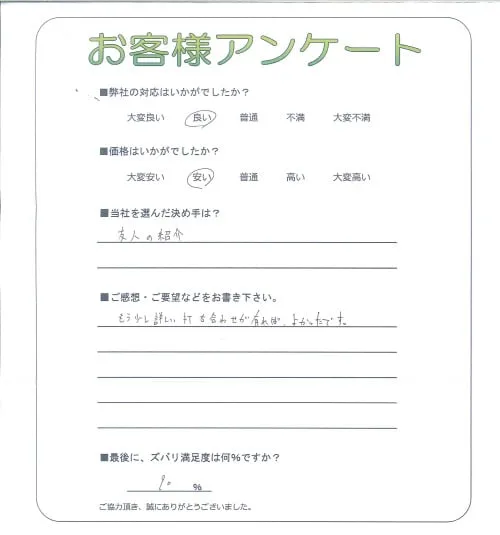 お客様アンケート
■弊社の対応はいかがでしたか？
大変良い 良い 普通 不満 大変不満
■価格はいかがでしたか？
大変安い 安い 普通 高い 大変高い
■当社を選んだ決め手は？
友人の紹介
■ご感想・ご要望などをお書き下さい。
もう少し詳しい打ち合わせが有れば、よかったです。
■最後に、ズバリ満足度は何％ですか？
90 ％
ご協力頂き、誠にありがとうございました。